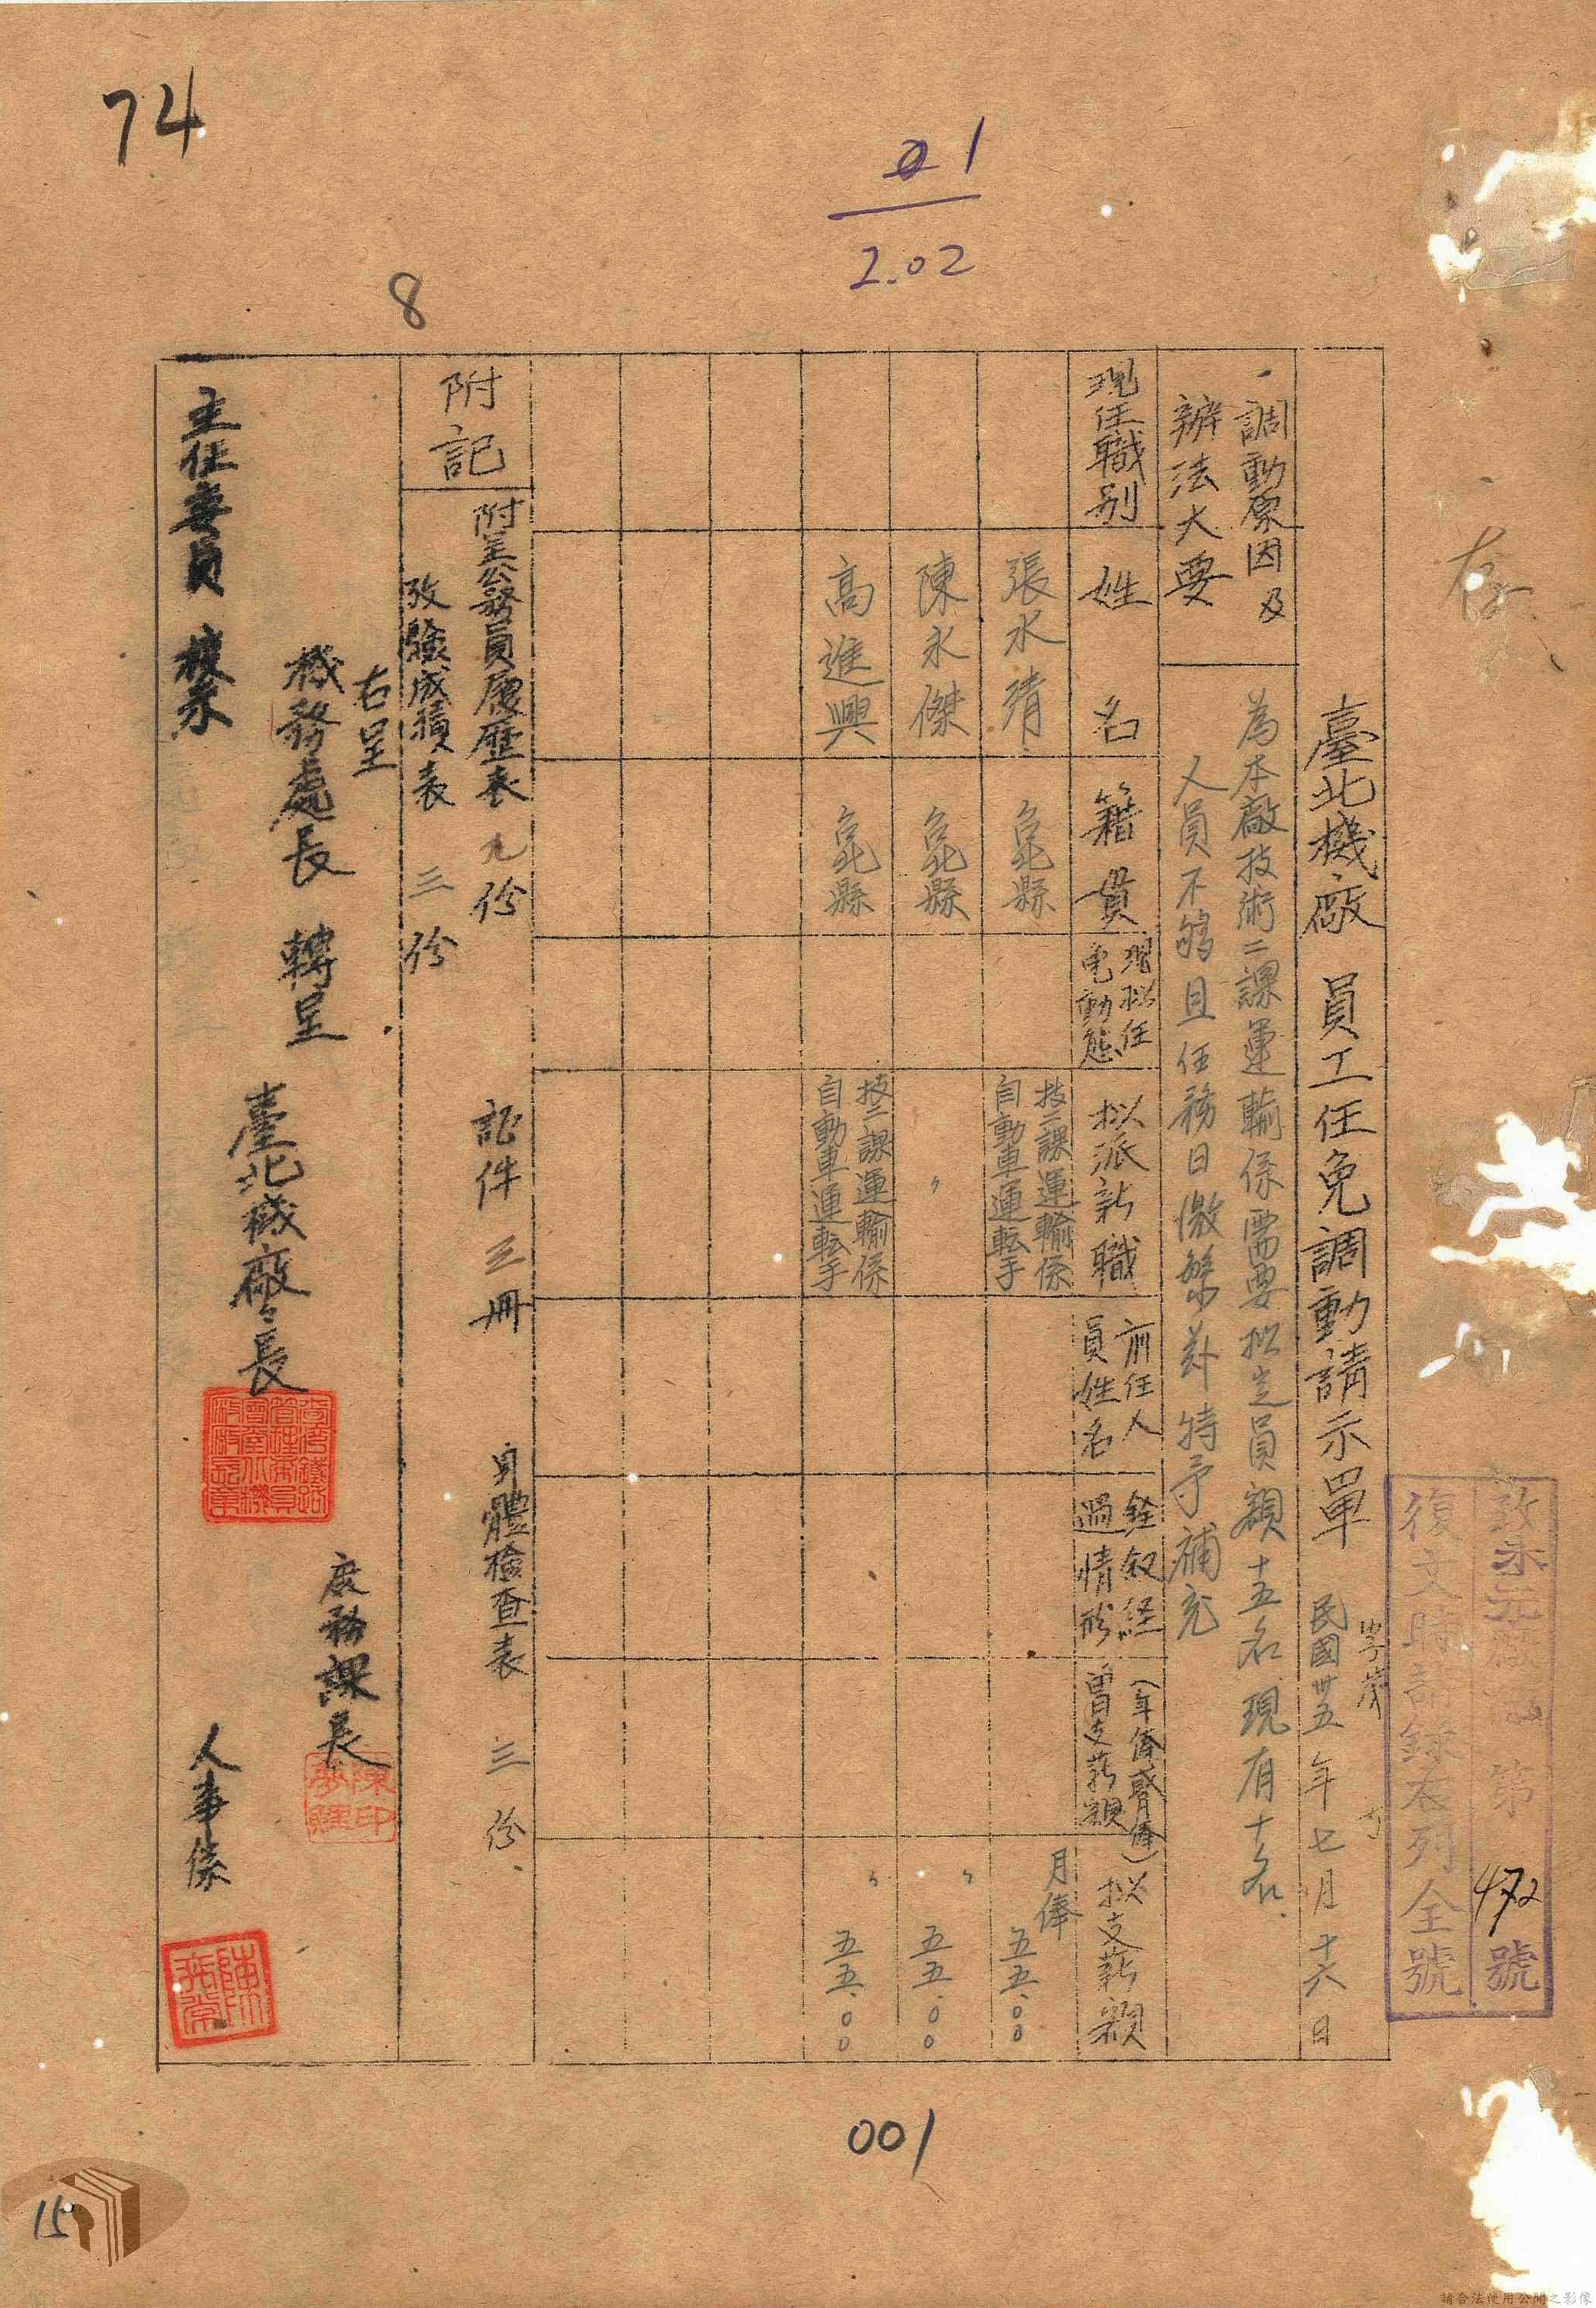 74
1
2.02
8
存
致
第472號
復文時請錄右列全號
臺北機廠 員工任免調動請示單 民國卅五年七月十六日
字第
号
調動原因及
辦法大要
為本廠技術二課運輸係需要拟定員額十五名現有十名
人員不够且任務日漸繁 特予補充
現任職別
姓名
籍貫
現拟任
免動態
拟派新職
前任人
員姓名
銓叙経
過情形
(年俸或月俸)
曾支薪額
拟支薪額
張水清
台北縣
技二課運輸係
自動車運転手
月俸
五五.〇〇
陳永傑
台北縣
〃
〃
五五.〇〇
高進興
台北縣
技二課運輸係
自動車運転手
〃
五五.〇〇
附記
附呈公務員履歷表 九份 証件 三冊 身體檢查表 三份
攷驗成績表 三份
右呈
機務處長 轉呈
主任委員 核示
臺北機廠廠長
庶務課長
人事係
陳印
001
15
請合法使用公開之影像